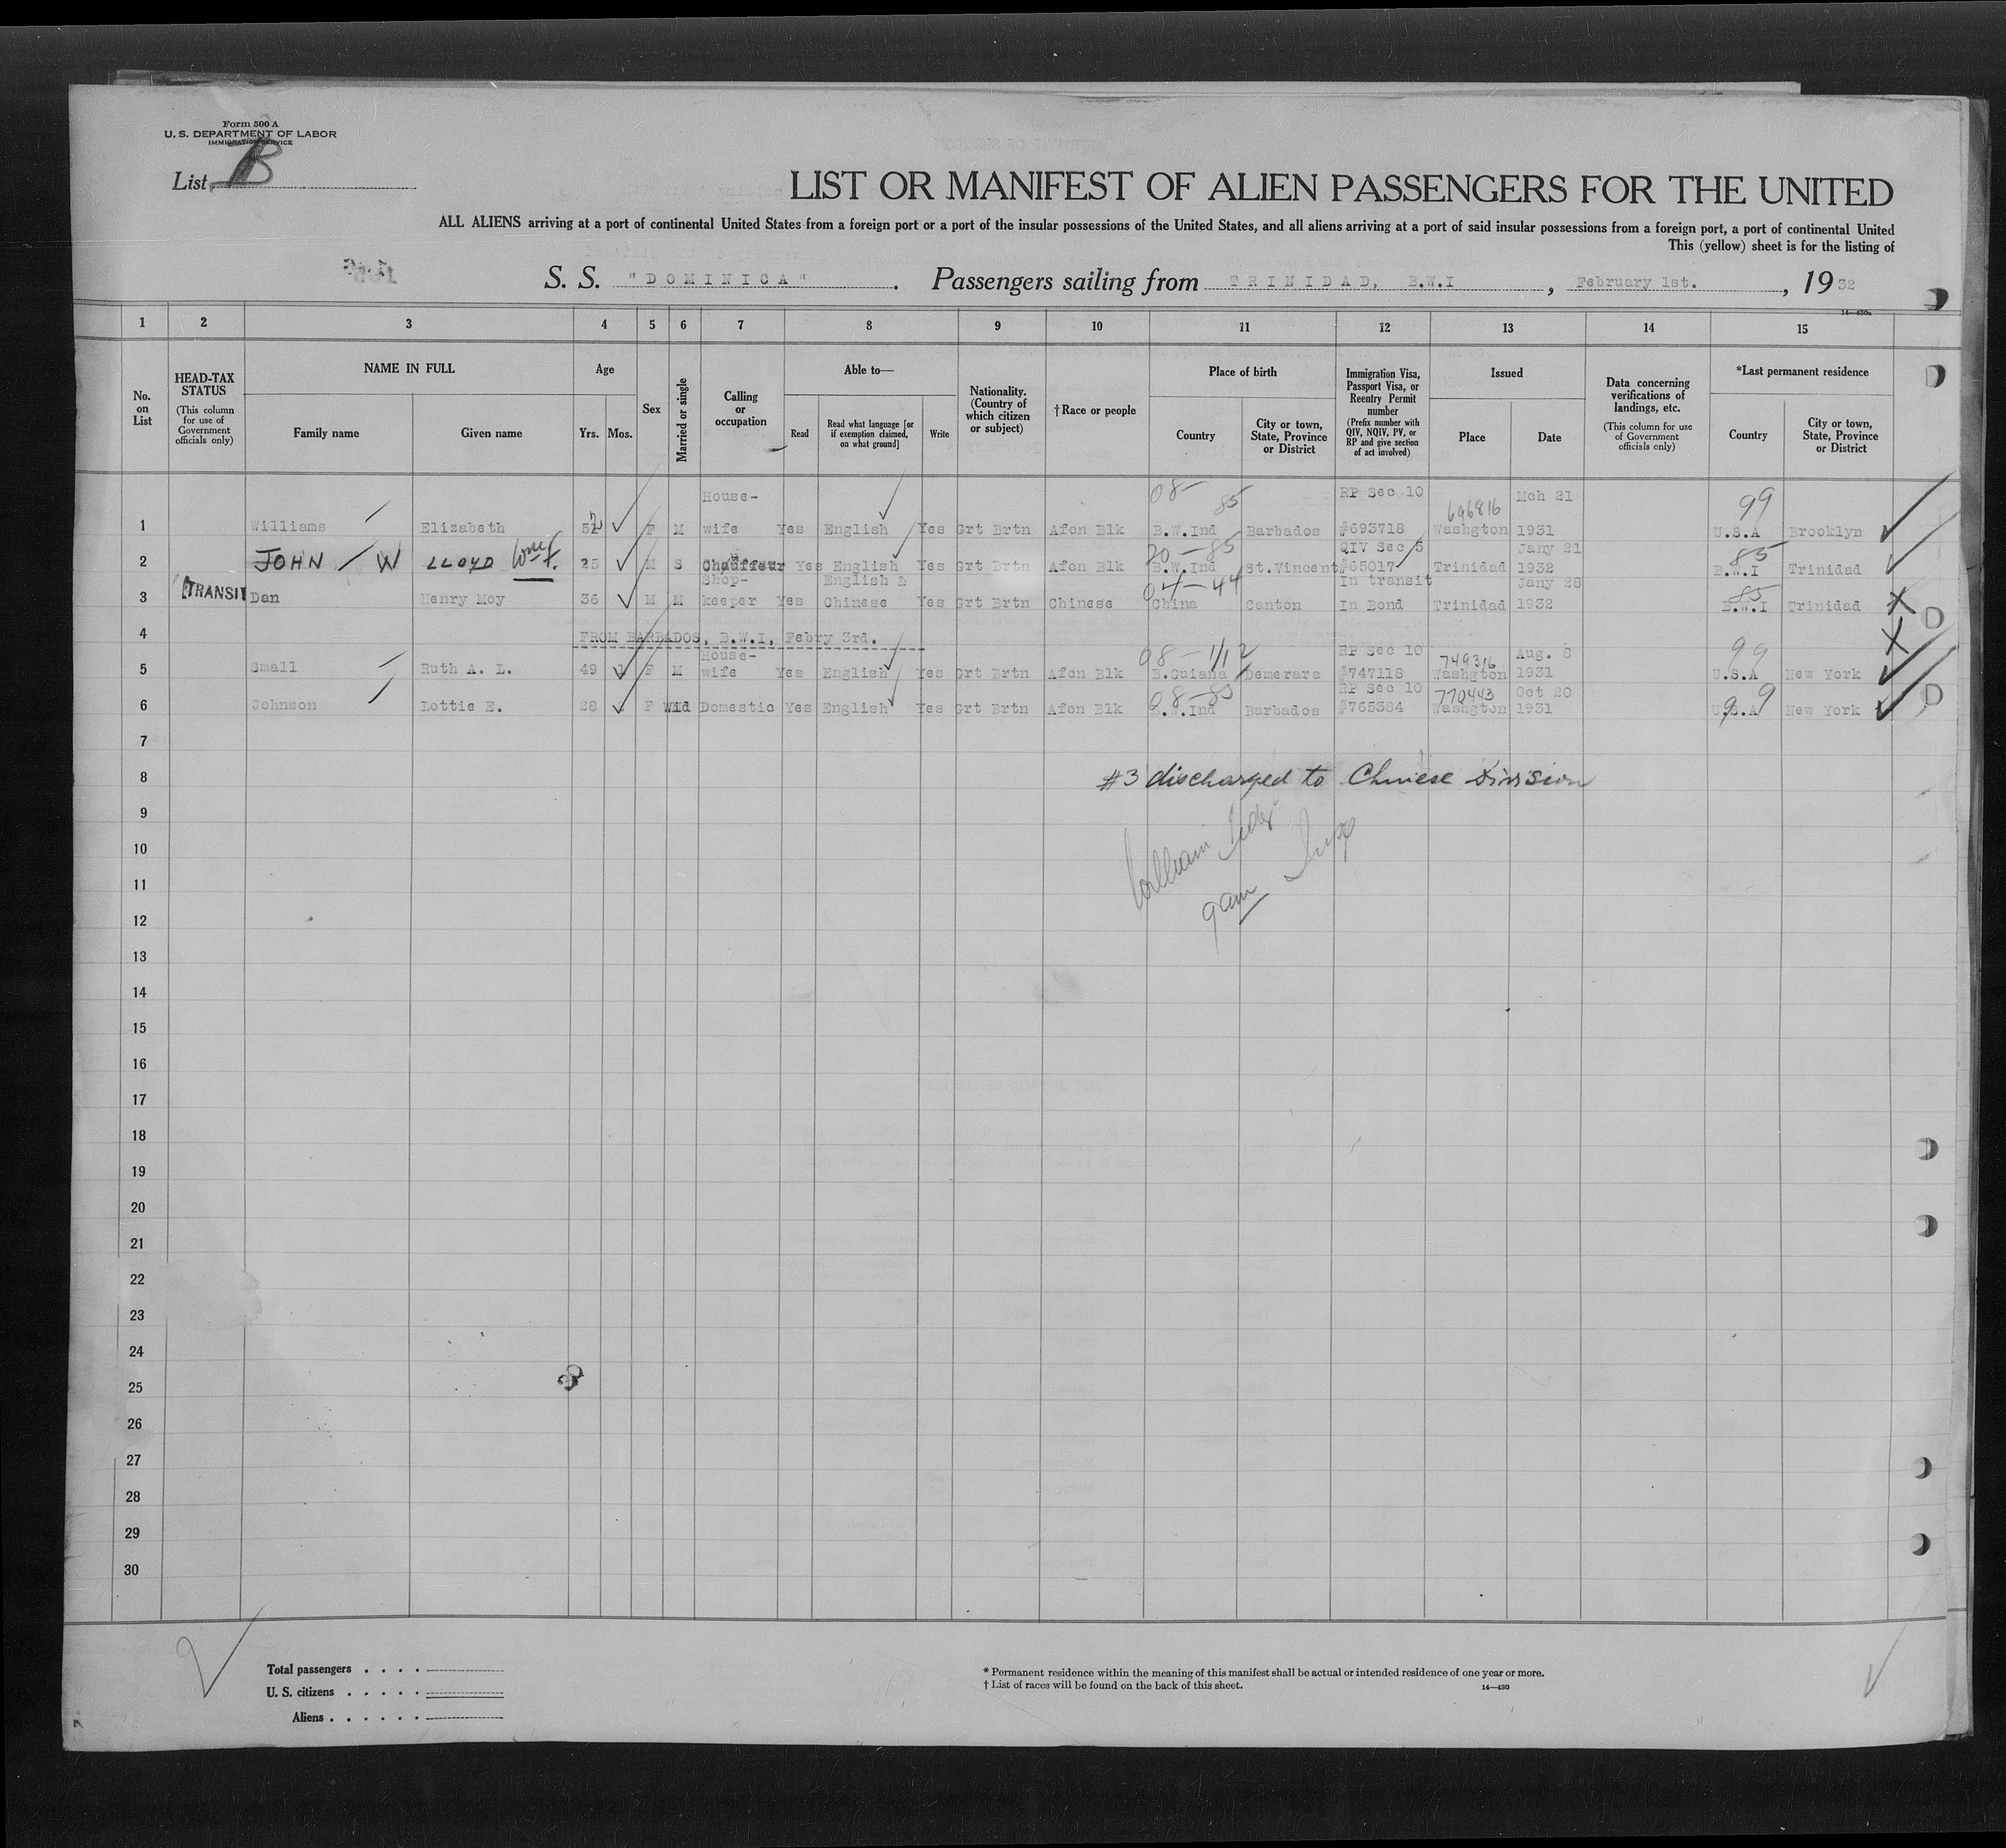 Form 500 A
U. S. DEPARTMENT OF LABOR
IMMIGRATION SERVICE
List B
LIST OR MANIFEST OF ALIEN PASSENGERS FOR THE UNITED
ALL ALIENS arriving at a port of continental United States from a foreign port or a port of the insular possessions of the United States, and all aliens arriving at a port of said insular possessions from a foreign port, a port of continental United
This (yellow) sheet is for the listing of
S. S. "DOMINICA". Passengers sailing from TRINIDAD, B.W.I, February 1st., 1932
14—430a
1 2 3 4 5 6 7 8 9 10 11 12 13 14 15
No. on List
HEAD-TAX STATUS (This column for use of Government officials only)
NAME IN FULL Family name Given name
Age Yrs. Mos.
Sex
Married or single
Calling or occupation
Able to— Read Read what language [or if exemption claimed, on what ground] Write
Nationality. (Country of which citizen or subject)
†Race or people
Place of birth Country City or town, State, Province or District
Immigration Visa, Passport Visa, or Reentry Permit number (Prefix number with QIV, NQIV, PV, or RP and give section of act involved)
Issued Place Date
Data concerning verifications of landings, etc. (This column for use of Government officials only)
*Last permanent residence Country City or town, State, Province or District
House- 08- 85 RP Sec 10 696816 Mch 21 99
1 Williams Elizabeth 52 F M wife Yes English Yes Grt Brtn Afcn Blk B.W.Ind Barbados #693718 Washgton 1931 U.S.A Brooklyn
20-85 QIV Sec 5 Jany 21 85
2 JOHN W LLOYD Wmf. 25 M S Chauffeur Yes English Yes Grt Brtn Afcn Blk B.W.Ind St.Vincent #65017 Trinidad 1932 B.W.I Trinidad
Shop- English & 04-44 In transit Jany 28 85
3 TRANSIT Dan Henry Moy 36 M M keeper Yes Chinese Yes Grt Brtn Chinese China Canton In Bond Trinidad 1932 B.W.I Trinidad
4 FROM BARBADOS, B.W.I, Febry 3rd.
House- 08-1/12 RP Sec 10 749316 Aug. 8 99
5 Small Ruth A. L. 49 F M wife Yes English Yes Grt Brtn Afcn Blk B.Guiana Demerara #747118 Washgton 1931 U.S.A New York
08-85 RP Sec 10 770443 Oct 20 99
6 Johnson Lottie E. 28 F Wid Domestic Yes English Yes Grt Brtn Afcn Blk B.W.Ind Barbados #765384 Washgton 1931 U.S.A New York
7
8 #3 discharged to Chinese Division
9
10 William
11
12
13
14
15
16
17
18
19
20
21
22
23
24
25
26
27
28
29
30
Total passengers . . . .
U. S. citizens . . . . .
Aliens . . . . . .
* Permanent residence within the meaning of this manifest shall be actual or intended residence of one year or more.
† List of races will be found on the back of this sheet.
14—430